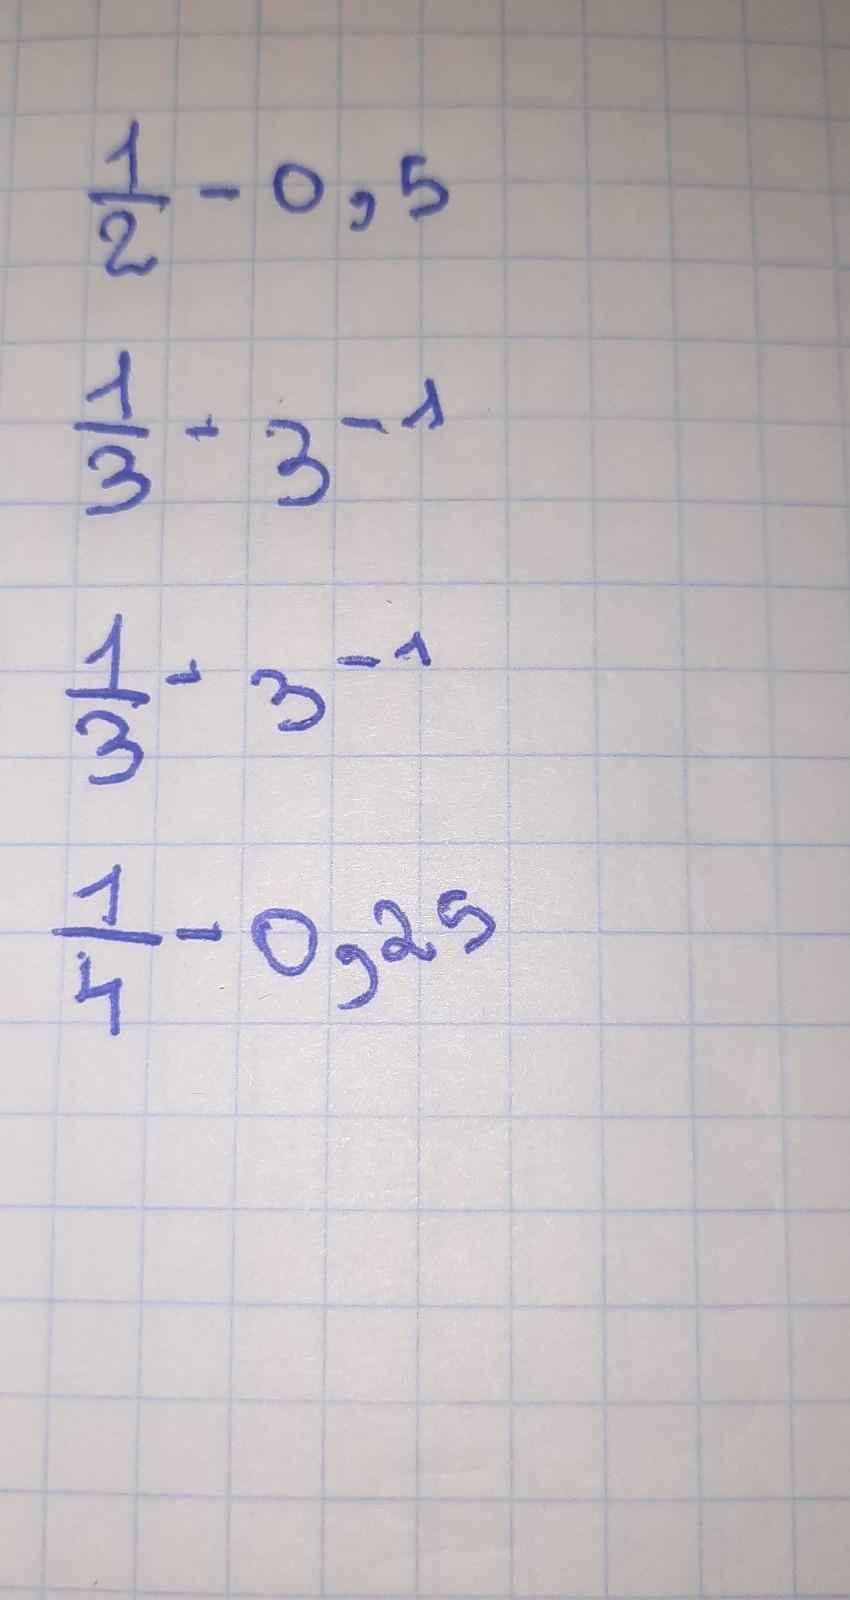 1/2 - 0,5
1/3 - 3^-1
1/3 - 3^-1
1/4 - 0,25